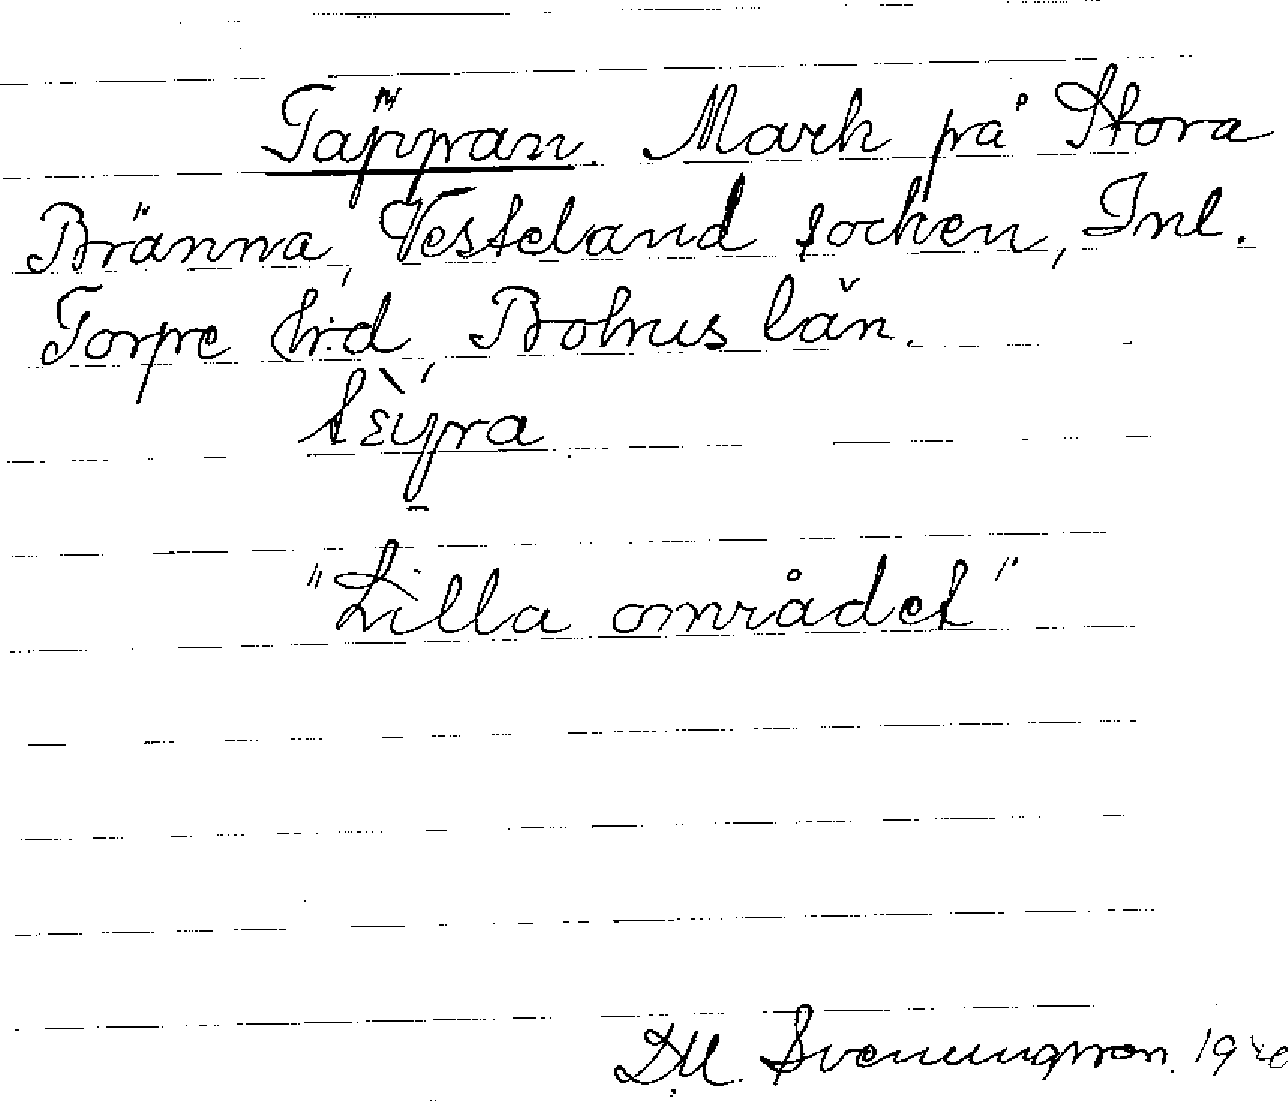 Täppan Mark på Stora
Bränna, Vesteland socken, Inl.
Torpe h:d, Bohus län.
"Lilla området"
D.M. Svenungson.